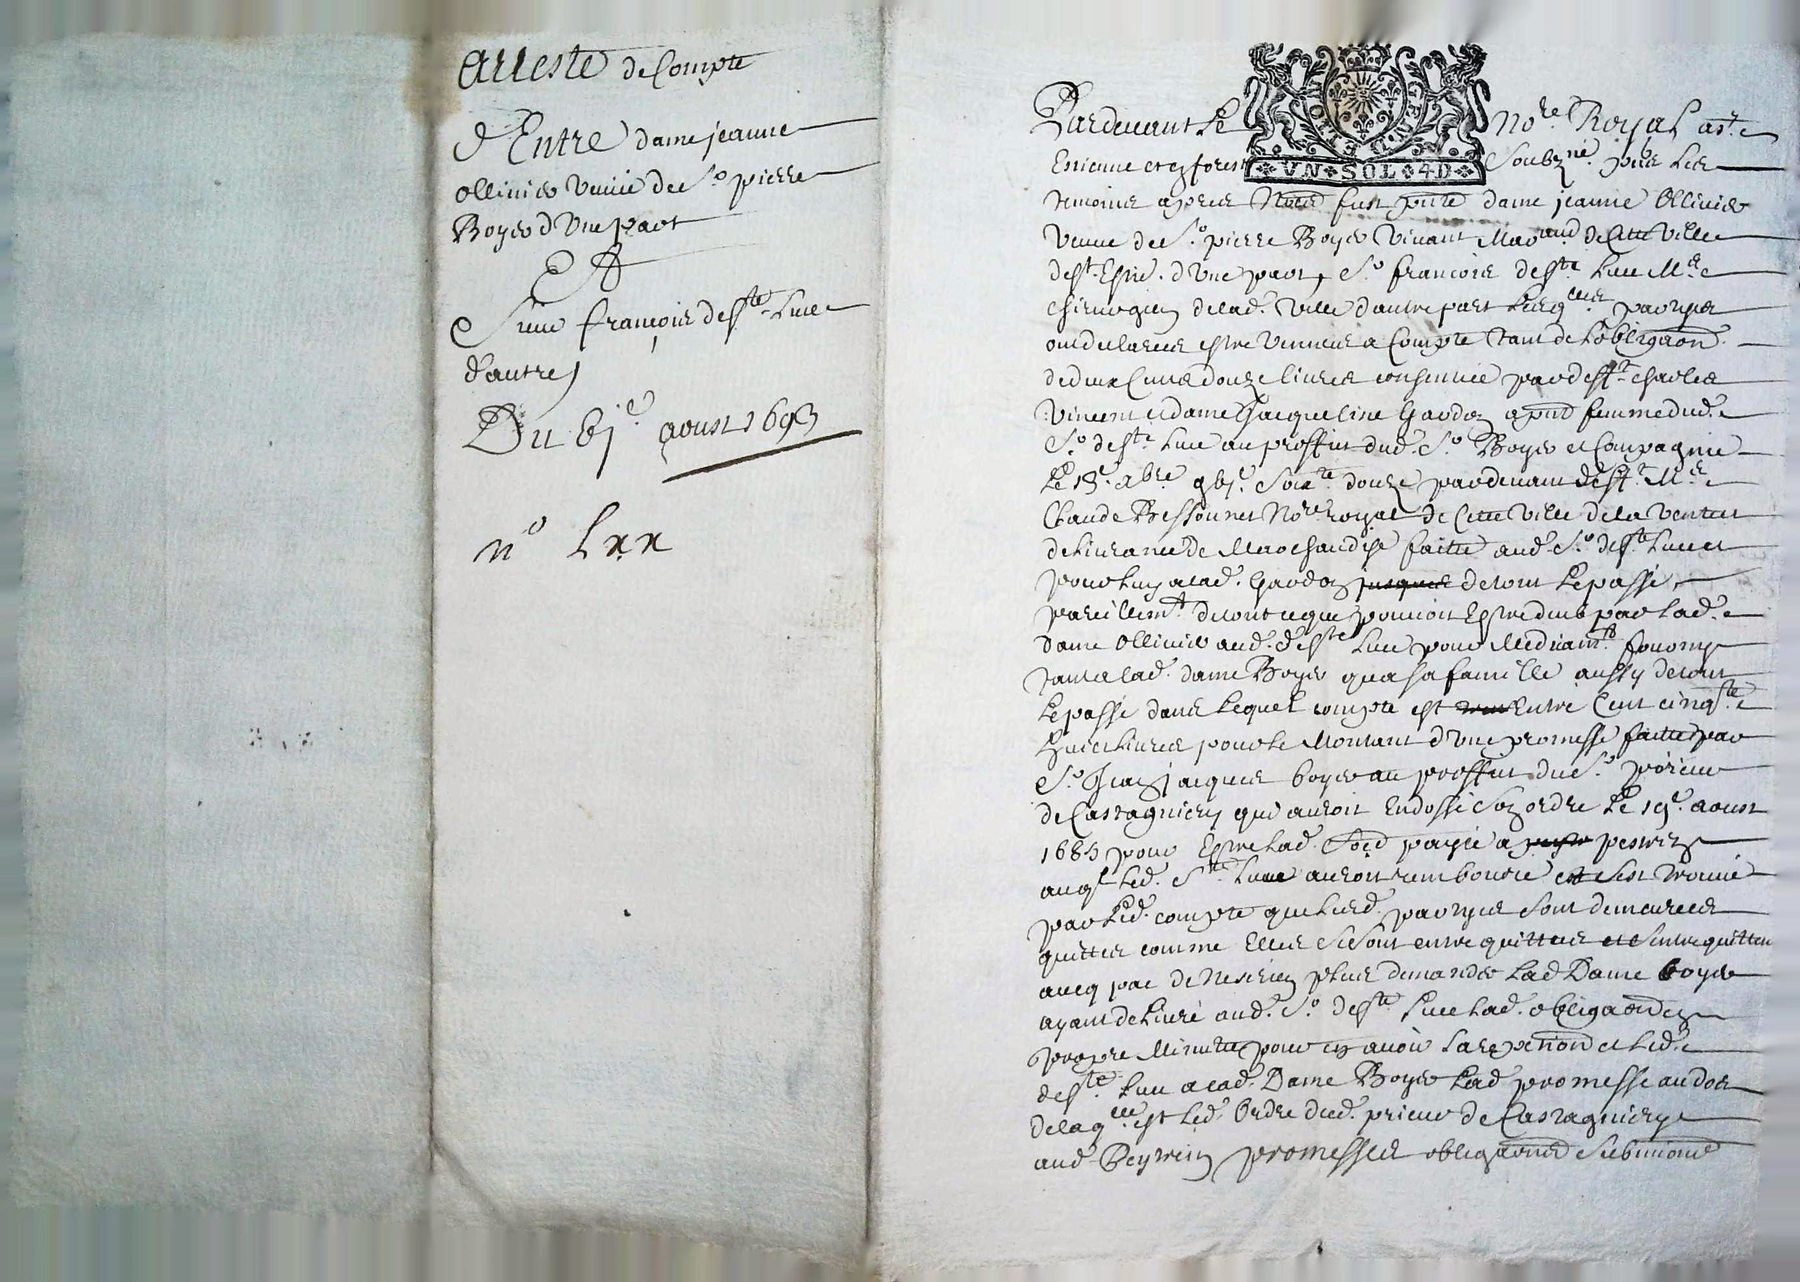 Arreste de Compte
D'Entre dame jeanne
ollivier veuve de Sr pierre
Boyer d'Une part
Et
Sieur françois de Ste Luce
d'autre
Du bje aoust 1693
no Lxx
Pardevant Le nore Royal
Estienne et en forest Soubzné. pnts Les
UN SOL 4D
temoins apres Nomé fust pnte dame jeanne Ollivier
veuve de Sr pierre Boyer vivant Marand de Cette ville
de St Estne. d'une part, Sr francois de Ste Luce Me
chirurgien de lad. ville d'autre part Lesqlles partyes
ont de Compte tant de L'obligaon
de deux Cents douze livres consentie par defft. charles
vincent et dame Jacqueline Gardon femme dud.
Sr de Ste Luce au proffit dud. Sr Boyer et Compagnie
Le xbre gbje. Soixte douze pardevant defft. Me
Claude Bessonnet Nore royal de Cette ville de la vente et
delivrance de Marchandise faitte aud. Sr de Ste Luce et
pour luy a lad. Gardon jusques de tout Le passé
pareillemt. de tout ce que pouvoit Estre dub par lad.
dame Ollivier aud. de Ste Luce pour Medicamts. fournys
tant a lad. dame Boyer qu'a sa famille aussy de tout
Le passé dans Lequel compte est Entré Cent cinqte
Livres pour le Montant d'Une promesse faitte par
Sr Jean jacques boyer au proffit du Sr prieur
de Castagniery qui auroit Endossé Son ordre Le 19e. aoust
1685 pour Estre lad. payée a
auql Led. Ste Luce auroit remboursé et s'est trouvé
par Led. compte que Lesd. partyes sont demeurées
quittes comme Elles se sont entre quittées et s'entrequittent
avecq pac de ne se rien plus demander Lad Dame boyer
ayant delivré aud. Sr de Ste Luce Lad. obligaon en
propre Minutte pour en avoir La et Led.
de Ste Luce a lad. Dame Boyer Lad promesse au dos
de laqlle est Led. Ordre dud. prieur de Castagniery
aud. promesses obligaons